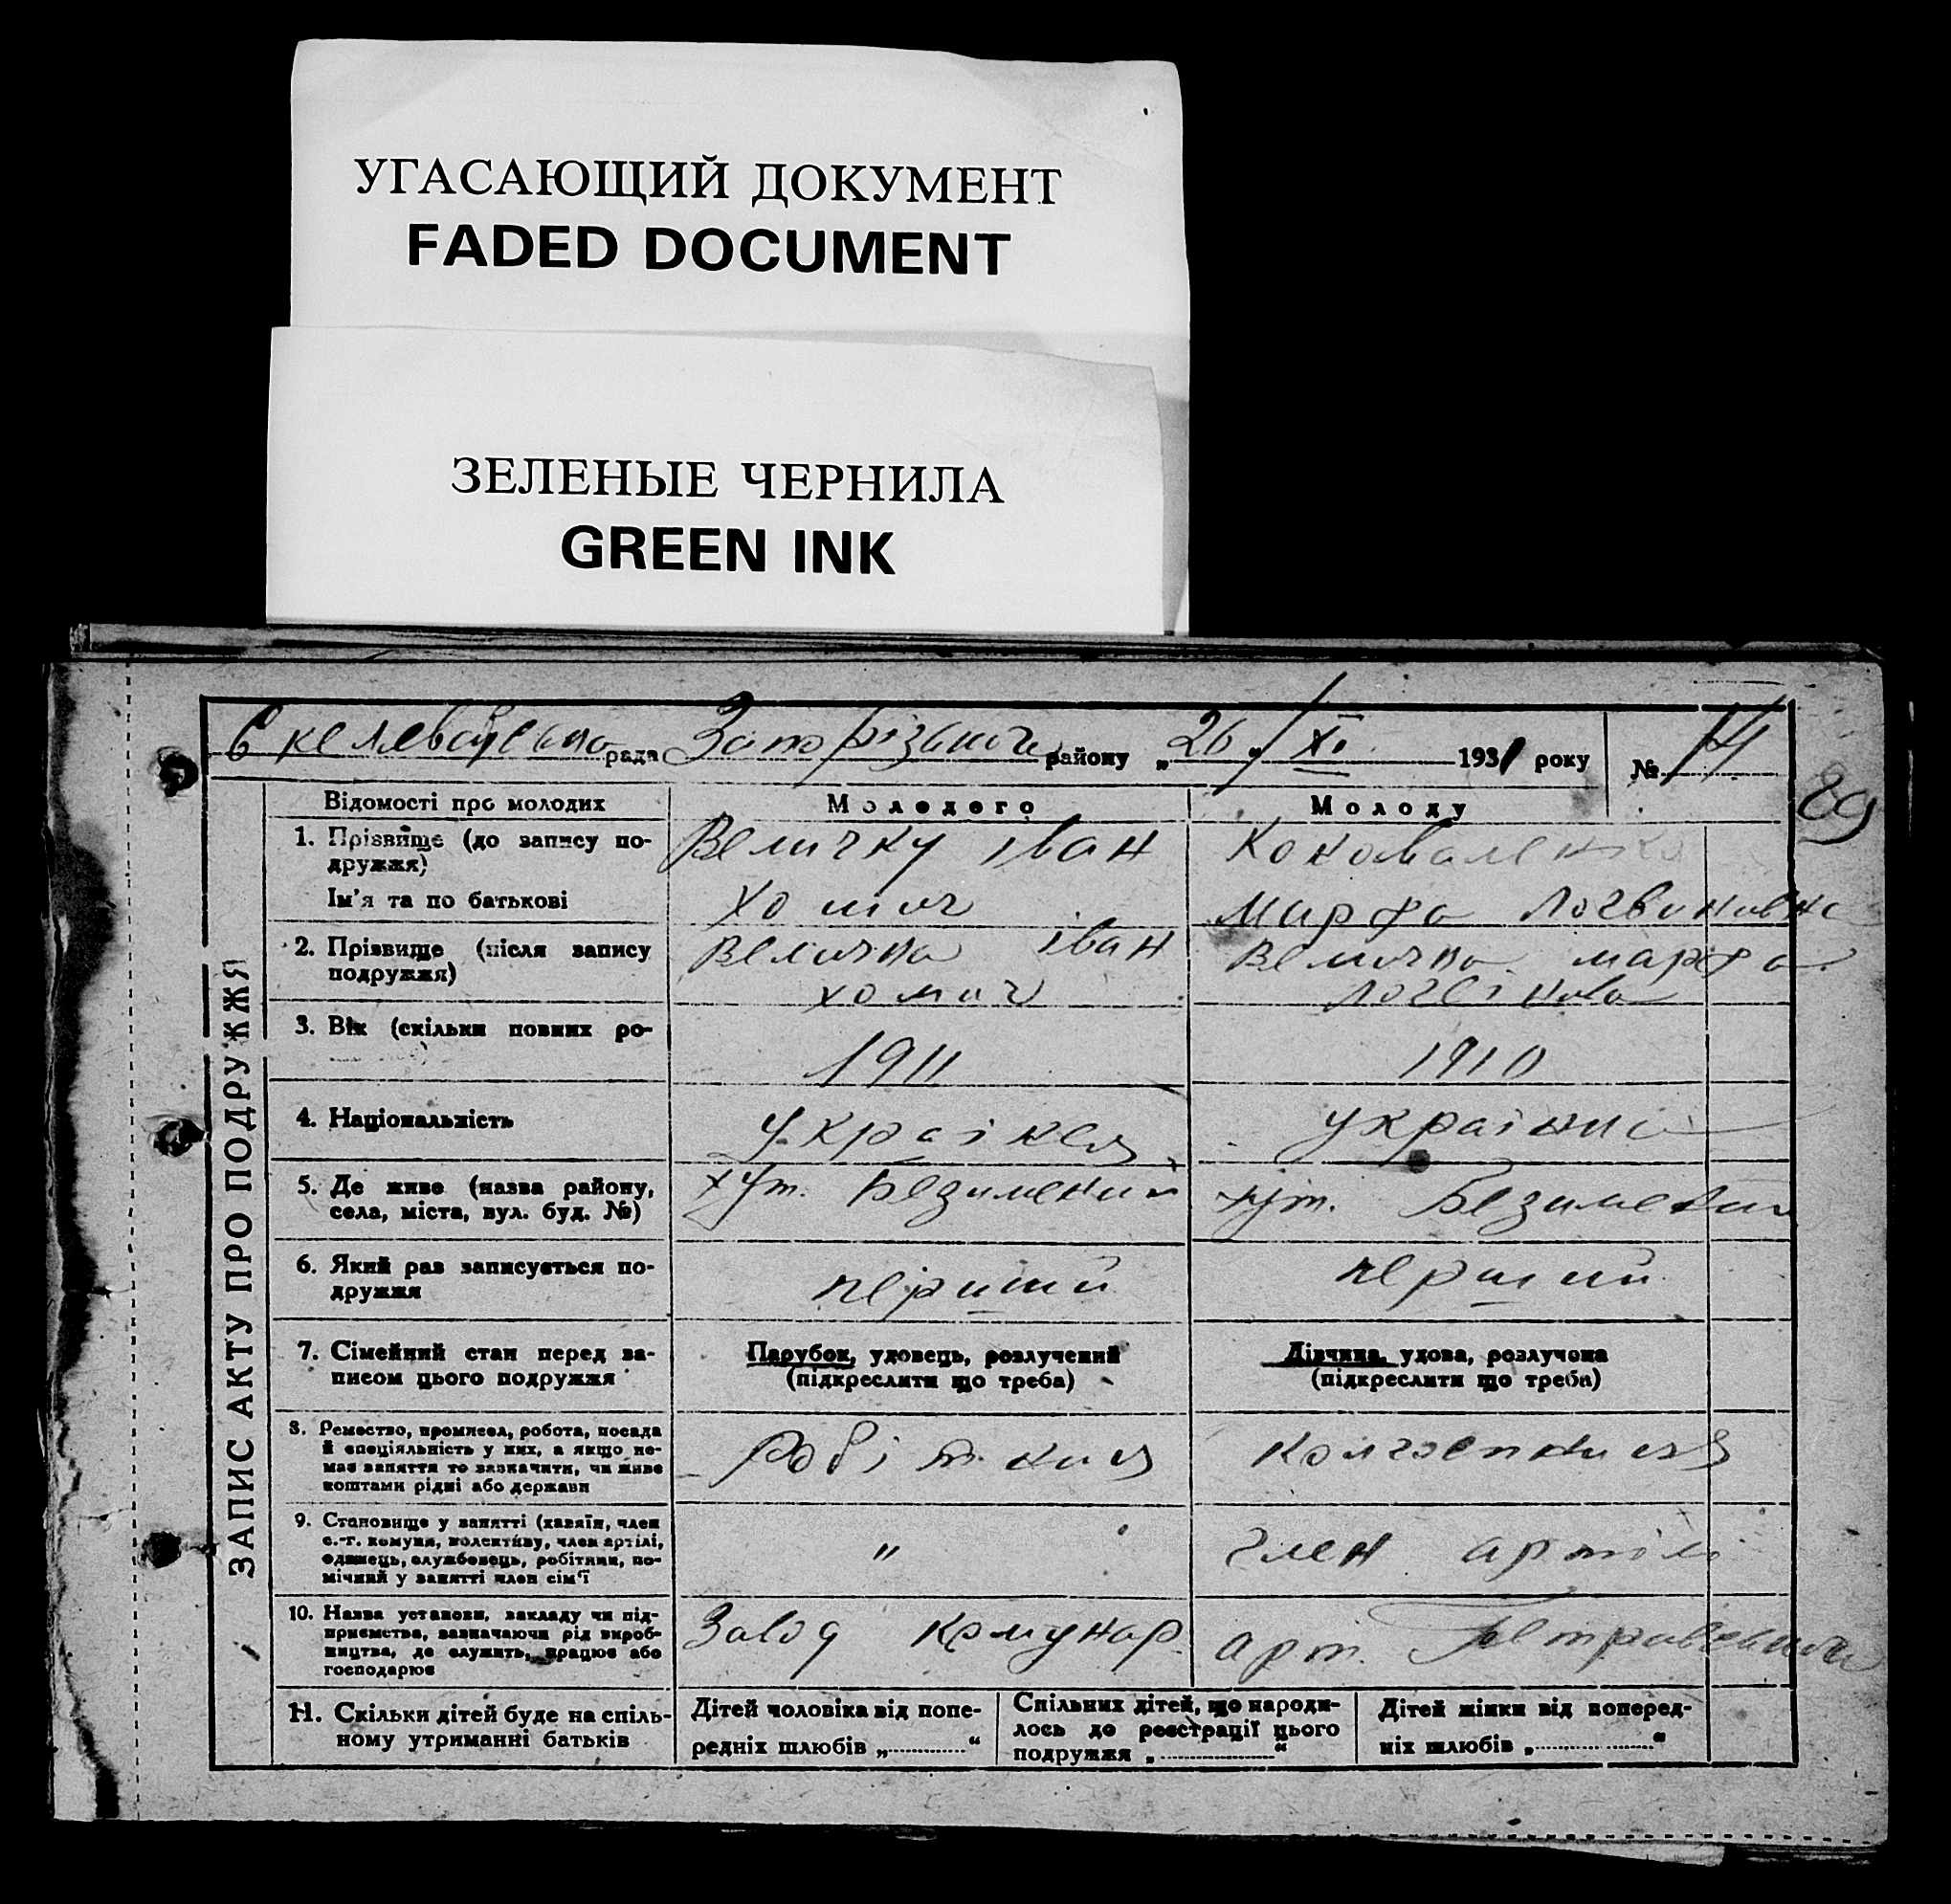 УГАСАЮЩИЙ ДОКУМЕНТ
FADED DOCUMENT
ЗЕЛЕНЫЕ ЧЕРНИЛА
GREEN INK
рада району „26„ XI 1931 року № 14
89
ЗАПИС АКТУ ПРО ПОДРУЖЖЯ
Відомості про молодих Молодого Молоду
1. Прізвище (до запису по-
дружжя)
Величку іван Коноваленко
Ім'я та по батькові
Хомич Марфа Логвиновна
2. Прізвище (після запису
подружжя)
Величко іван Величко марфа
хомич
3. Вік (скільки повних ро-
1911 1910
4. Національність
українка
5. Де живе (назва району,
села, міста, вул. буд. №)
хут. хут.
6. Який раз записується по-
дружжя
перший перший
7. Сімейний стан перед за-
писом цього подружжя
Парубок, удовець, розлучений
(підкреслити що треба)
Дівчина, удова, розлучена
(підкреслити що треба)
8. Ремество, промисел, робота, посада
й спеціяльність у них, а якщо не-
має заняття то зазначити, чи живе
коштами рідні або держави
Робітник
9. Становище у занятті (хазяїн, член
с.-г. комуни, колективу, член артілі,
одинець, службовець, робітник, по-
мічний у занятті член сім'ї
" член артілі
10. Назва установи, закладу чи під-
приємства, зазначаючи рід вироб-
ництва, де служить, працює або
господарює
Завод комунар. арт.
11. Скільки дітей буде на спіль-
ному утриманні батьків
Дітей чоловіка від попе-
редніх шлюбів „............“
Спільних дітей, що народи-
лось до реєстрації цього
подружжя „............“
Дітей жінки від поперед-
ніх шлюбів „............“